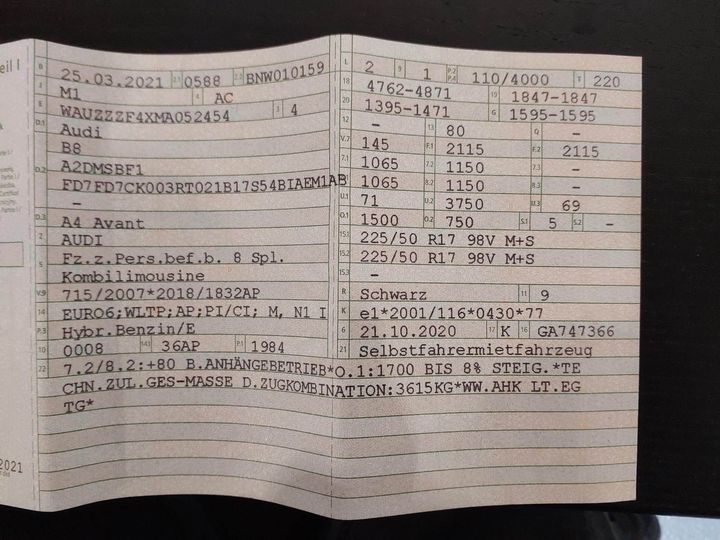 eil I
B 25.03.2021 2.1 0588 2.2 BNW010159
J M1 4 AC
E WAUZZZF4XMA052454 3 4
D.1 Audi
B8
D.2 A2DMSBF1
FD7FD7CK003RT021B17S54BIAEM1AB
-
D.3 A4 Avant
2 AUDI
5 Fz.z.Pers.bef.b. 8 Spl.
Kombilimousine
V.9 715/2007*2018/1832AP
14 EURO6;WLTP;AP;PI/CI; M, N1 I
P.3 Hybr.Benzin/E
10 0008 14.1 36AP P.1 1984
L 2 9 1 P.2 P.4 110/4000 T 220
18 4762-4871 19 1847-1847
20 1395-1471 G 1595-1595
12 - 13 80 Q -
V.7 145 F.1 2115 F.2 2115
7.1 1065 7.2 1150 7.3 -
8.1 1065 8.2 1150 8.3 -
U.1 71 U.2 3750 U.3 69
O.1 1500 O.2 750 S.1 5 S.2 -
15.1 225/50 R17 98V M+S
15.2 225/50 R17 98V M+S
15.3 -
R Schwarz 11 9
K e1*2001/116*0430*77
6 21.10.2020 17 K 16 GA747366
21 Selbstfahrermietfahrzeug
22 7.2/8.2:+80 B.ANHÄNGEBETRIEB*O.1:1700 BIS 8% STEIG.*TE
CHN.ZUL.GES-MASSE D.ZUGKOMBINATION:3615KG*WW.AHK LT.EG
TG*
2021